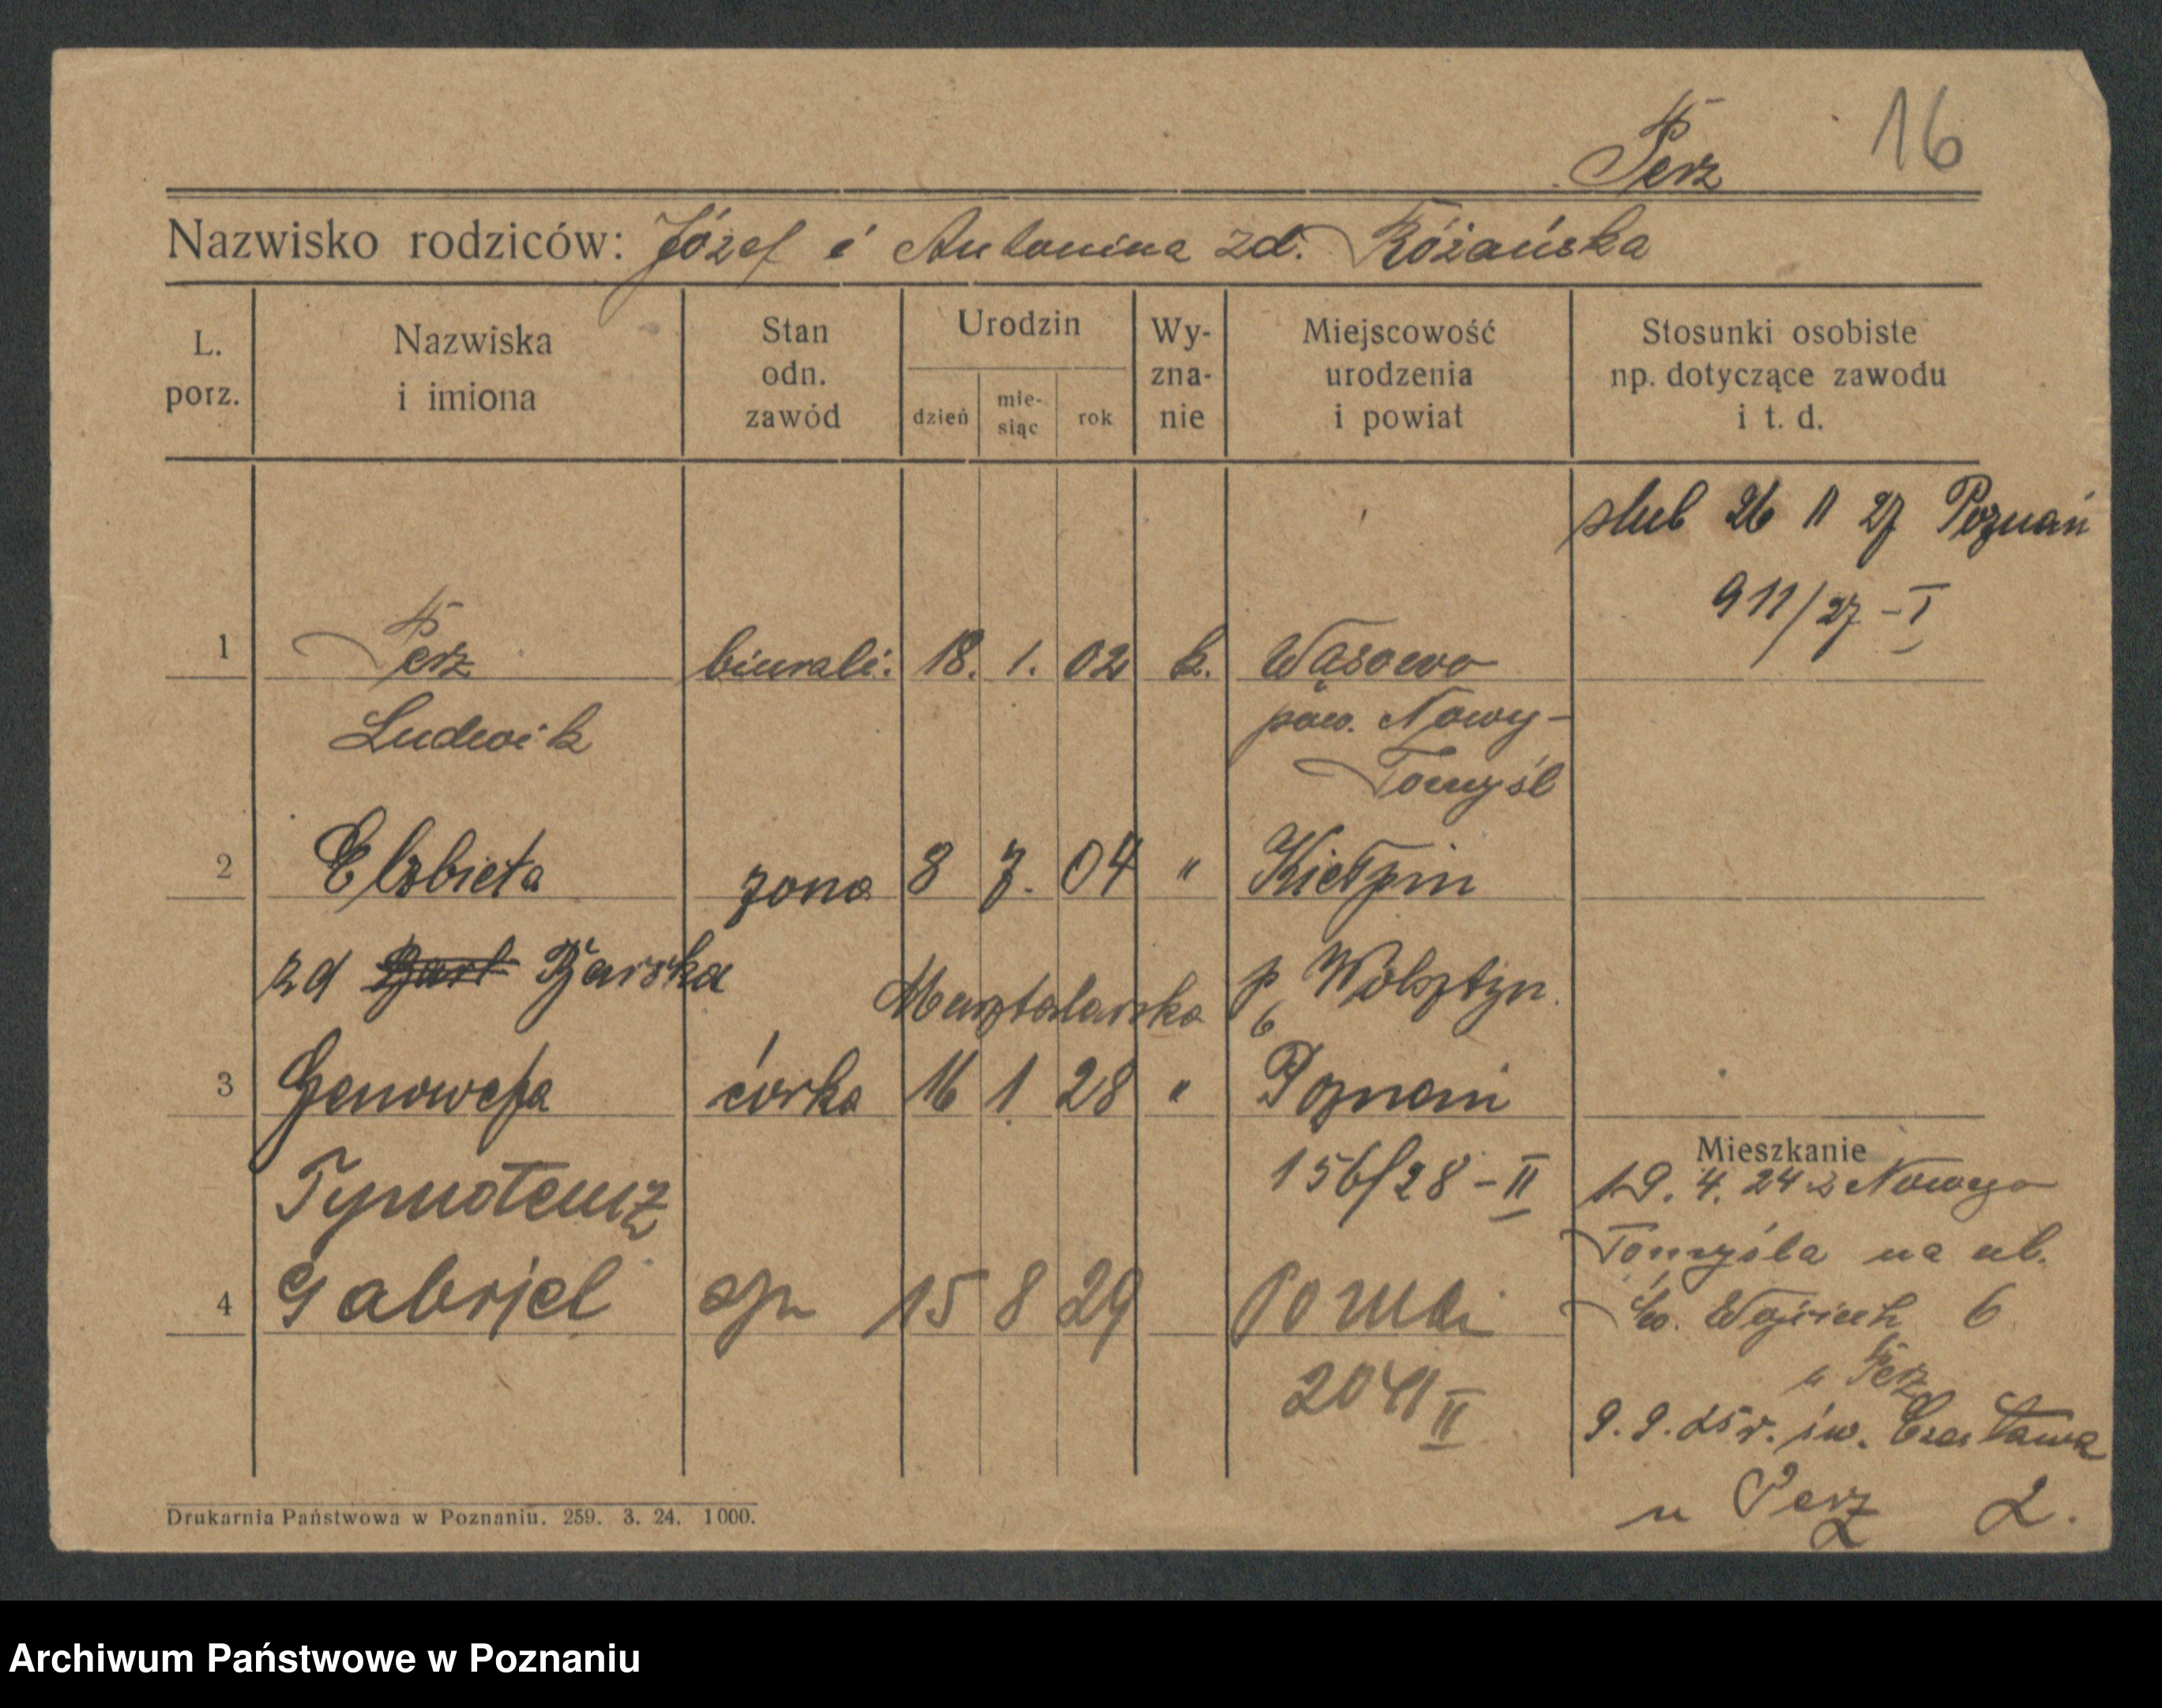 Perz 16
Nazwisko rodziców: Józef i Antonina zd. Różańska
L. porz.
Nazwiska i imiona
Stan odn. zawód
Urodzin
dzień
mie-siąc
rok
Wy-zna-nie
Miejscowość urodzenia i powiat
Stosunki osobiste np. dotyczące zawodu i t. d.
slub 26 11 27 Poznań
911/27 - I
1 Perz biurali. 18. 1. 02 k. Wąsowo
Ludwik pow. Nowy-
Tomyśl
2 Elzbieta zona 8 7. 04 " Kiełpin
zd Barska p Wolsztyn
Masztalarska 6
3 Genowefa córka 16 1 28 " Poznań
156/28 - II
Mieszkanie
19. 4. 24 z Nowego
Tomyśla na ul.
Św. Wojciech 6
u Perz
Tymoteusz
4 Gabrjel syn 15 8 29
2041 II
9. 9. 25 r. św. Czesława
u Perz 2.
Drukarnia Państwowa w Poznaniu. 259. 3. 24. 1000.
Archiwum Państwowe w Poznaniu